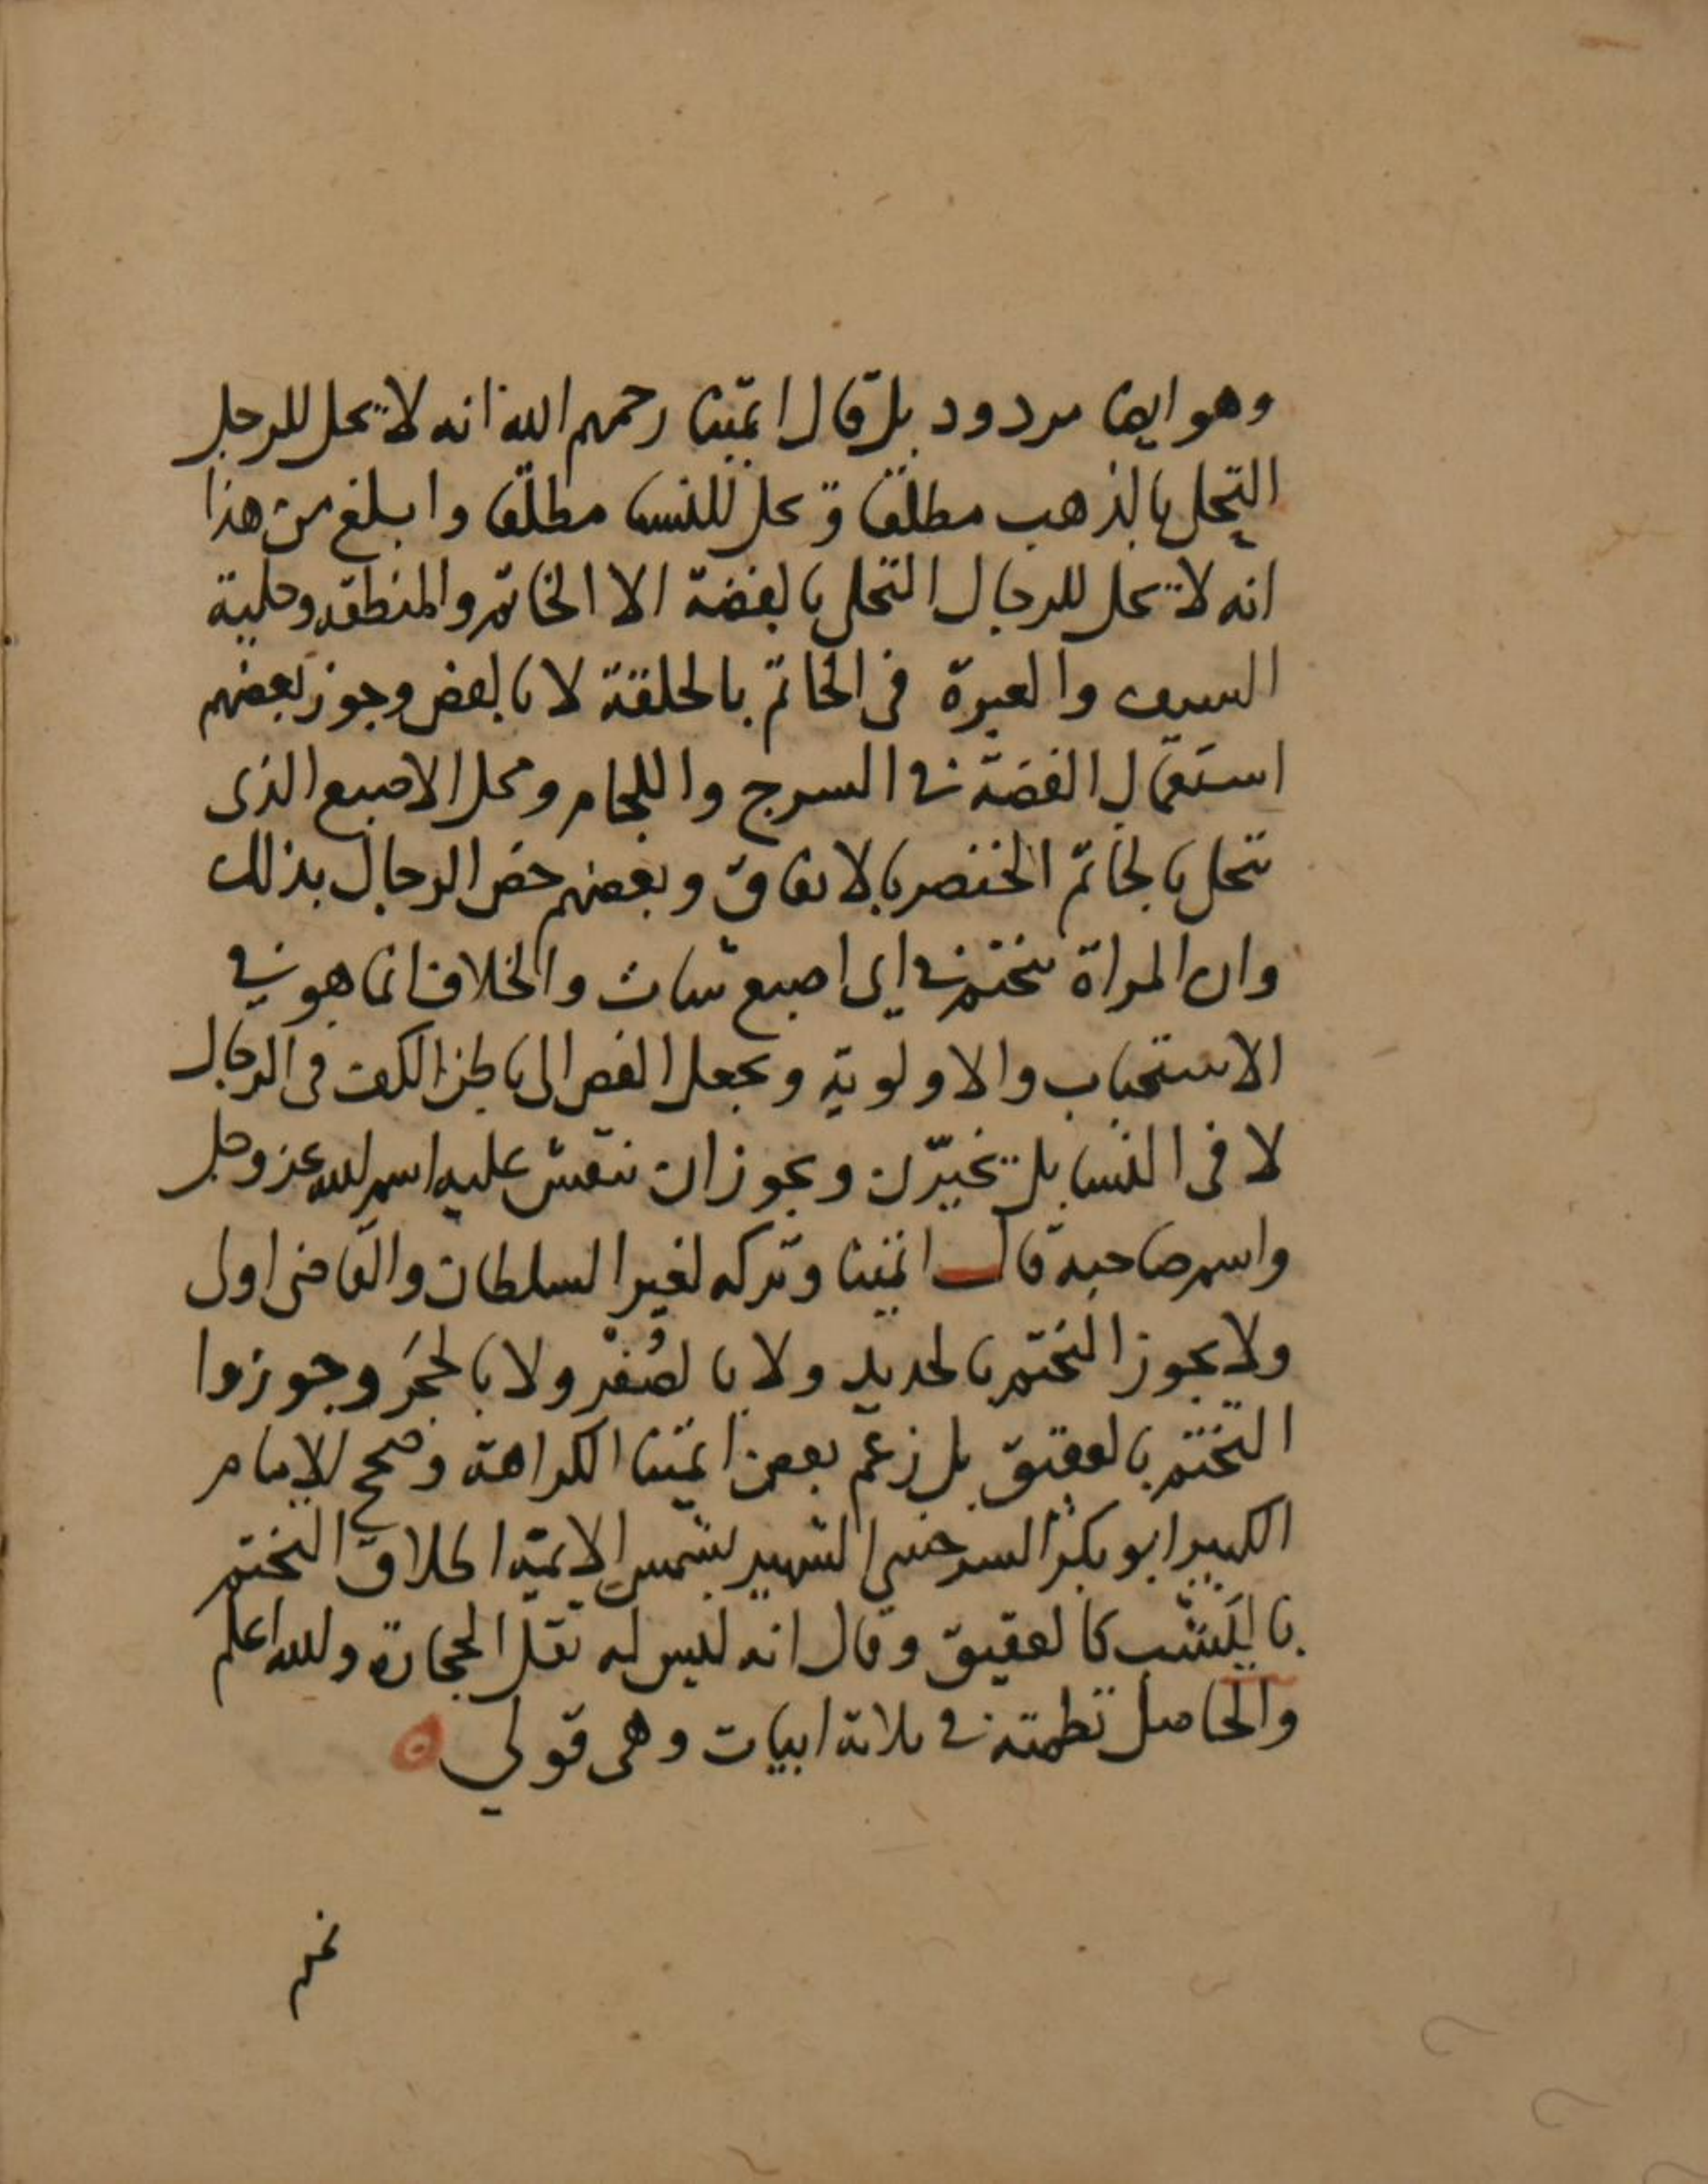 وهو ايضا مردود بل قال ايمتنا رحمهم الله انه لا يحل للرجل
التحلي بالذهب مطلقا ويحل للنسا مطلقا وابلغ من هذا
انه لا يحل للرجال التحلي بالفضة الا الخاتم والمنطقه وحلية
السيف والعبرة في الخاتم بالحلقة لا بالفص وجوز بعضهم
استعمال الفضة في السرج واللجام ومحل الاصبع الذى
تحلى بالخاتم الخنصر بالاتفاق وبعضهم خص الرجال بذلك
وان المراة تتختم في اي اصبع شات والخلاف انما هو في
الاستحباب والاولوية ويجعل الفص الى باطن الكف في الرجال
لا في النسا بل تخيرن ويجوز ان ينقش عليه اسم الله عز وجل
واسم صاحبه قال ايمتنا وتركه لغير السلطان والقاضي اولى
ولا يجوز التختم بالحديد ولا بالصُفْر ولا بالحجَر وجوزوا
التختم بالعقيق بل زعم بعض ايمتنا الكراهة وصحح الامام
الكبير ابو بكر السرخسي الشهير بشمس الايمة اطلاق التختم
باليَشب كالعقيق وقال انه ليس له ثقل الحجارة والله اعلم
والحاصل نظمته في ثلاثة ابيات وهي قولي